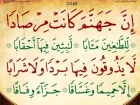 إِنَّ جَهَنَّمَ كَانَتْ مِرْصَادًا
لِّلطَّاغِينَ مَآبًا لَّابِثِينَ فِيهَا أَحْقَابًا
لَّا يَذُوقُونَ فِيهَا بَرْدًا وَلَا شَرَابًا
إِلَّا حَمِيمًا وَغَسَّاقًا جَزَاءً وِفَاقًا